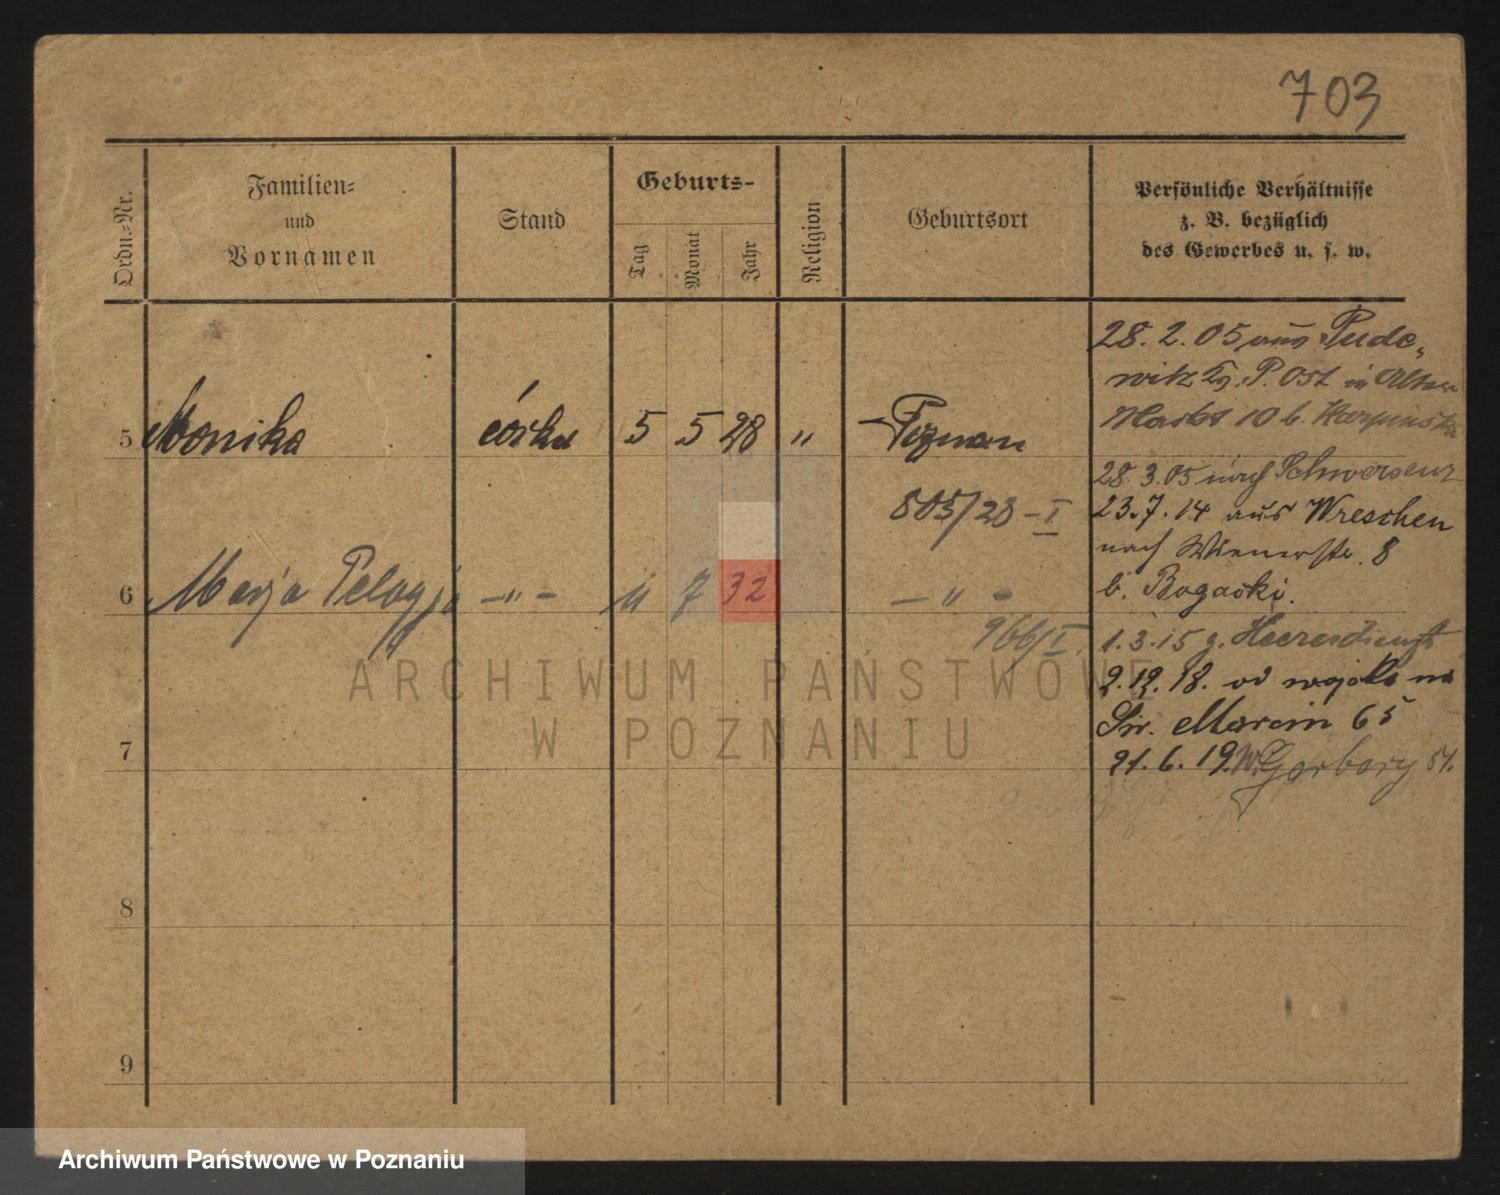 703
Ordn.-Nr.
Familien-
und
Vornamen
Stand
Geburts-
Tag
Monat
Jahr
Religion
Geburtsort
Persönliche Verhältnisse
z. B. bezüglich
des Gewerbes u. s. w.
5 Monika córka 5 5 28 " Poznan
805/28 – I
6 Marja Pelagja – " – 11 7 32 – " –
966/I.
7
8
9
28. 2. 05 aus Pude„
witz P. Ost in Alter
Markt 10 b.
28. 3. 05 nach Schwersenz
23. 7. 14 aus Wreschen
nach Wienerstr. 8
b. Bogacki.
1. 3. 15 z. Heeresdienst
2. 12. 18. od wojska na
Św. Marcin 65
21. 6. 19. Garbary 51.
ARCHIWUM PAŃSTWOWE
W POZNANIU
Archiwum Państwowe w Poznaniu